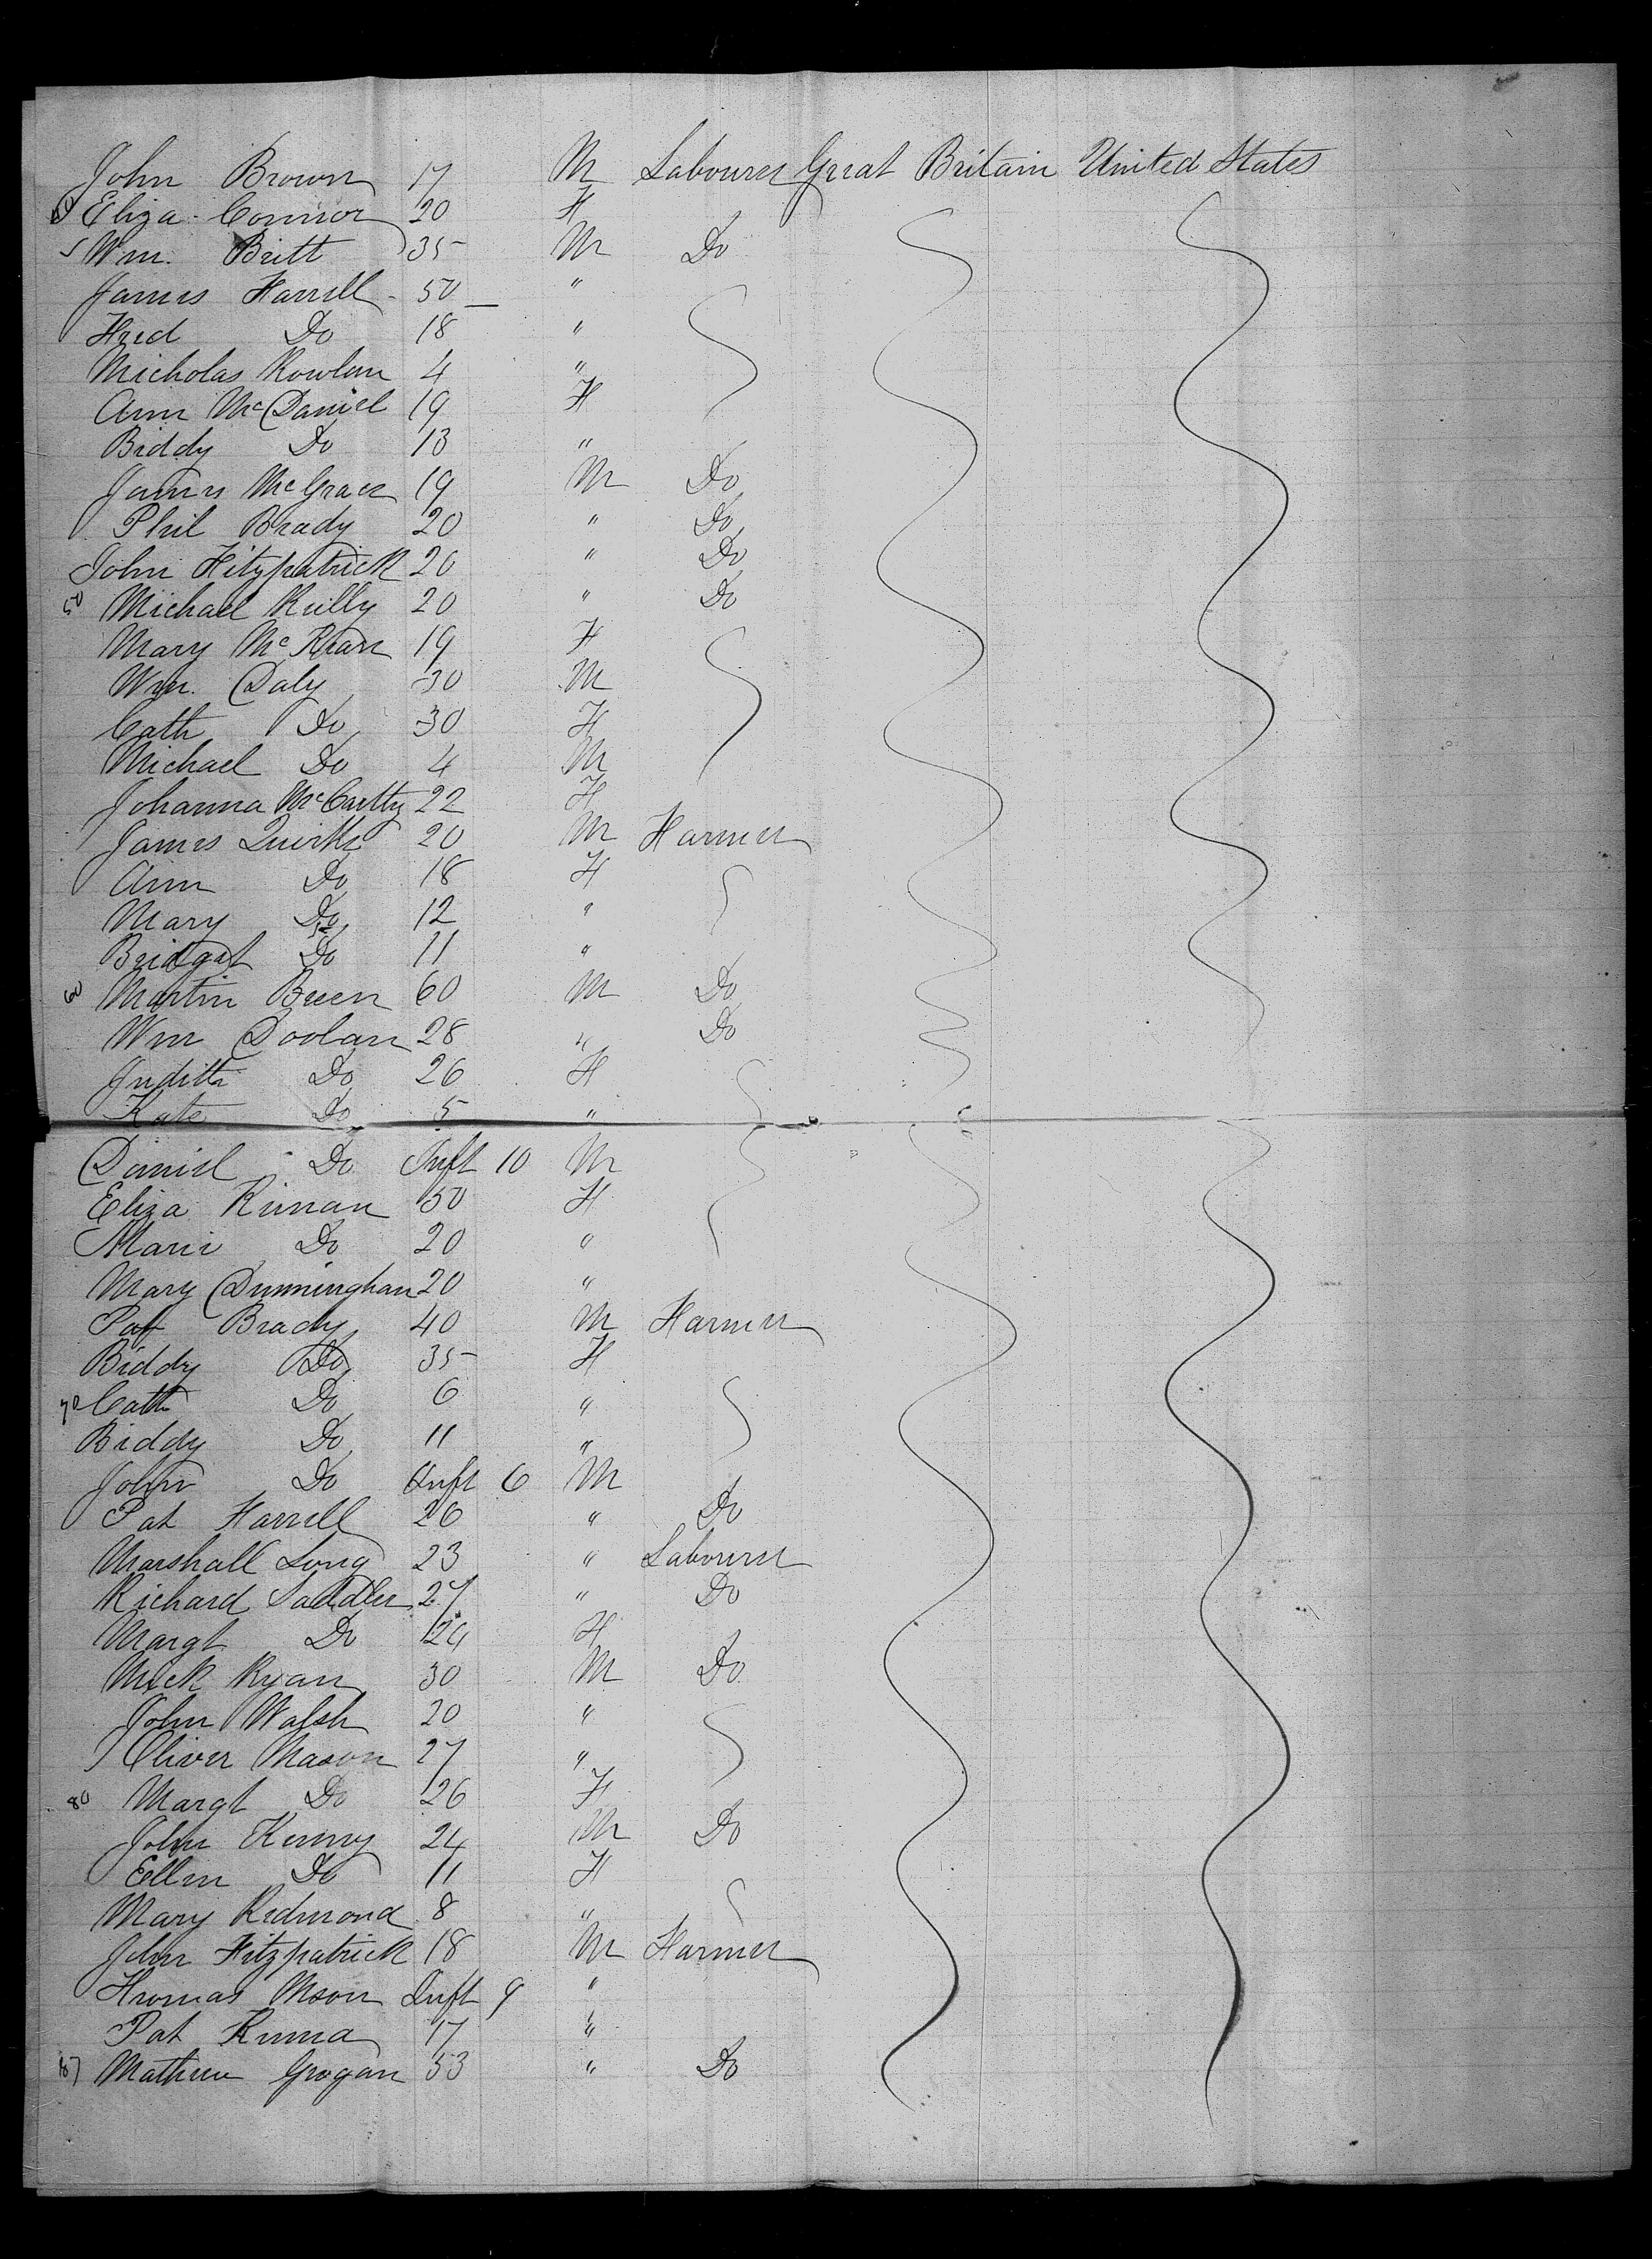 John Brown 17 M Labourer Great Britain United States
Eliza Connor 20 F
Wm. Britt 35 M Do
James Farrell 50 "
Fred Do 18 "
Nicholas Rowlan 4 "
Ann McDaniel 19 F
Biddy Do 13 "
James McGrace 19 M Do
Phil Brady 20 " Do
John Fitzpatrick 20 " Do
50 Michael Reilly 20 " Do
Mary McKean 19 F
Wm. Daly 30 M
Cath Do 30 F
Michael Do 4 M
Johanna McCartty 22 F
James Quirke 20 M Farmer
Ann Do 18 F
Mary Do 12 "
Bridget Do 11 "
60 Martin Breen 60 M Do
Wm Doolan 28 " Do
Judith Do 26 F
Kate Do 5 "
Daniel Do Inft 10 M
Eliza Kinnan 50 F
Maria Do 20 "
Mary Dunningham 20 "
Pat Brady 40 M Farmer
Biddy Do 35 F
70 Cath Do 6 "
Biddy Do 11 "
John Do Inft 6 M
Pat Farrell 26 " Do
Marshall Long 23 " Labourer
Richard Saddler 27 " Do
Margt Do 24 F
Mick Ryan 30 M Do
John Walsh 20 "
Oliver Mason 27 "
80 Margt Do 26 F
John Kenny 24 M Do
Ellen Do 11 F
Mary Redmond 8 "
John Fitzpatrick 18 M Farmer
Thomas Moon Inft 9 "
Pat 17 "
87 Mathew Grogan 53 " Do